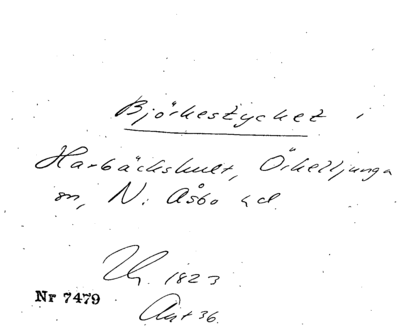 Björkestycket i
Harbäckshult, Örkelljunga
sn, N. Åsbo hd
1823
Nr 7479
Akt 36.